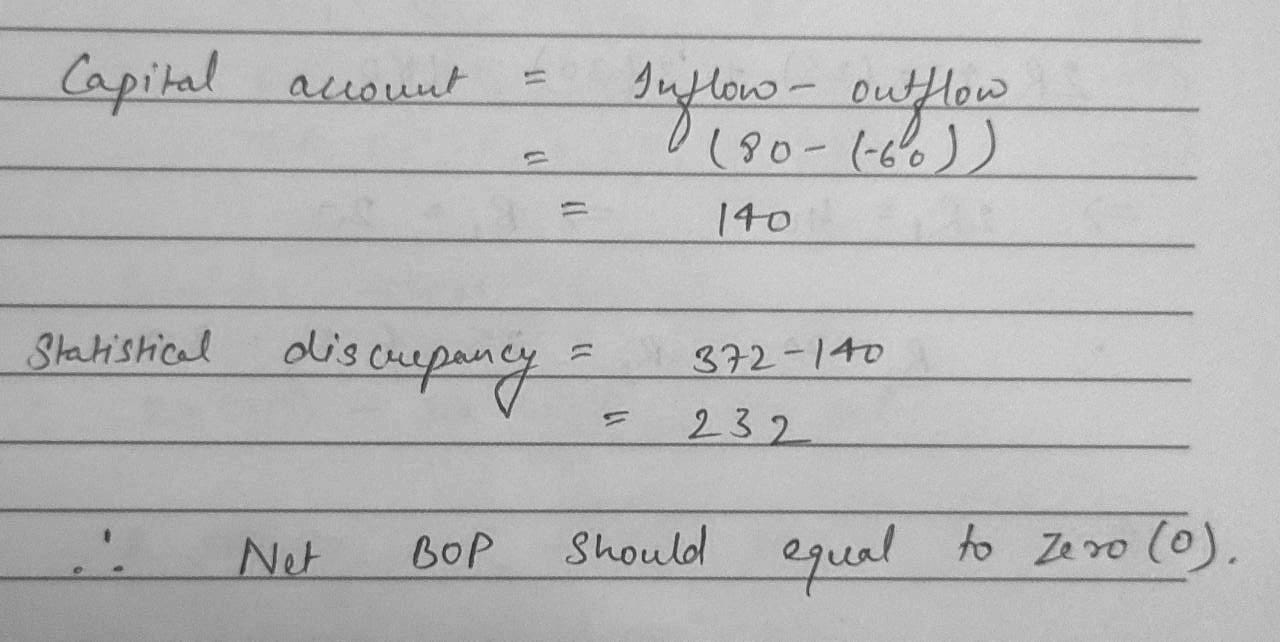 Capital account = Inflow - outflow
= (80 - (-60))
= 140
Statistical discrepancy = 372 - 140
= 232
∴ Net BOP should equal to zero (0).